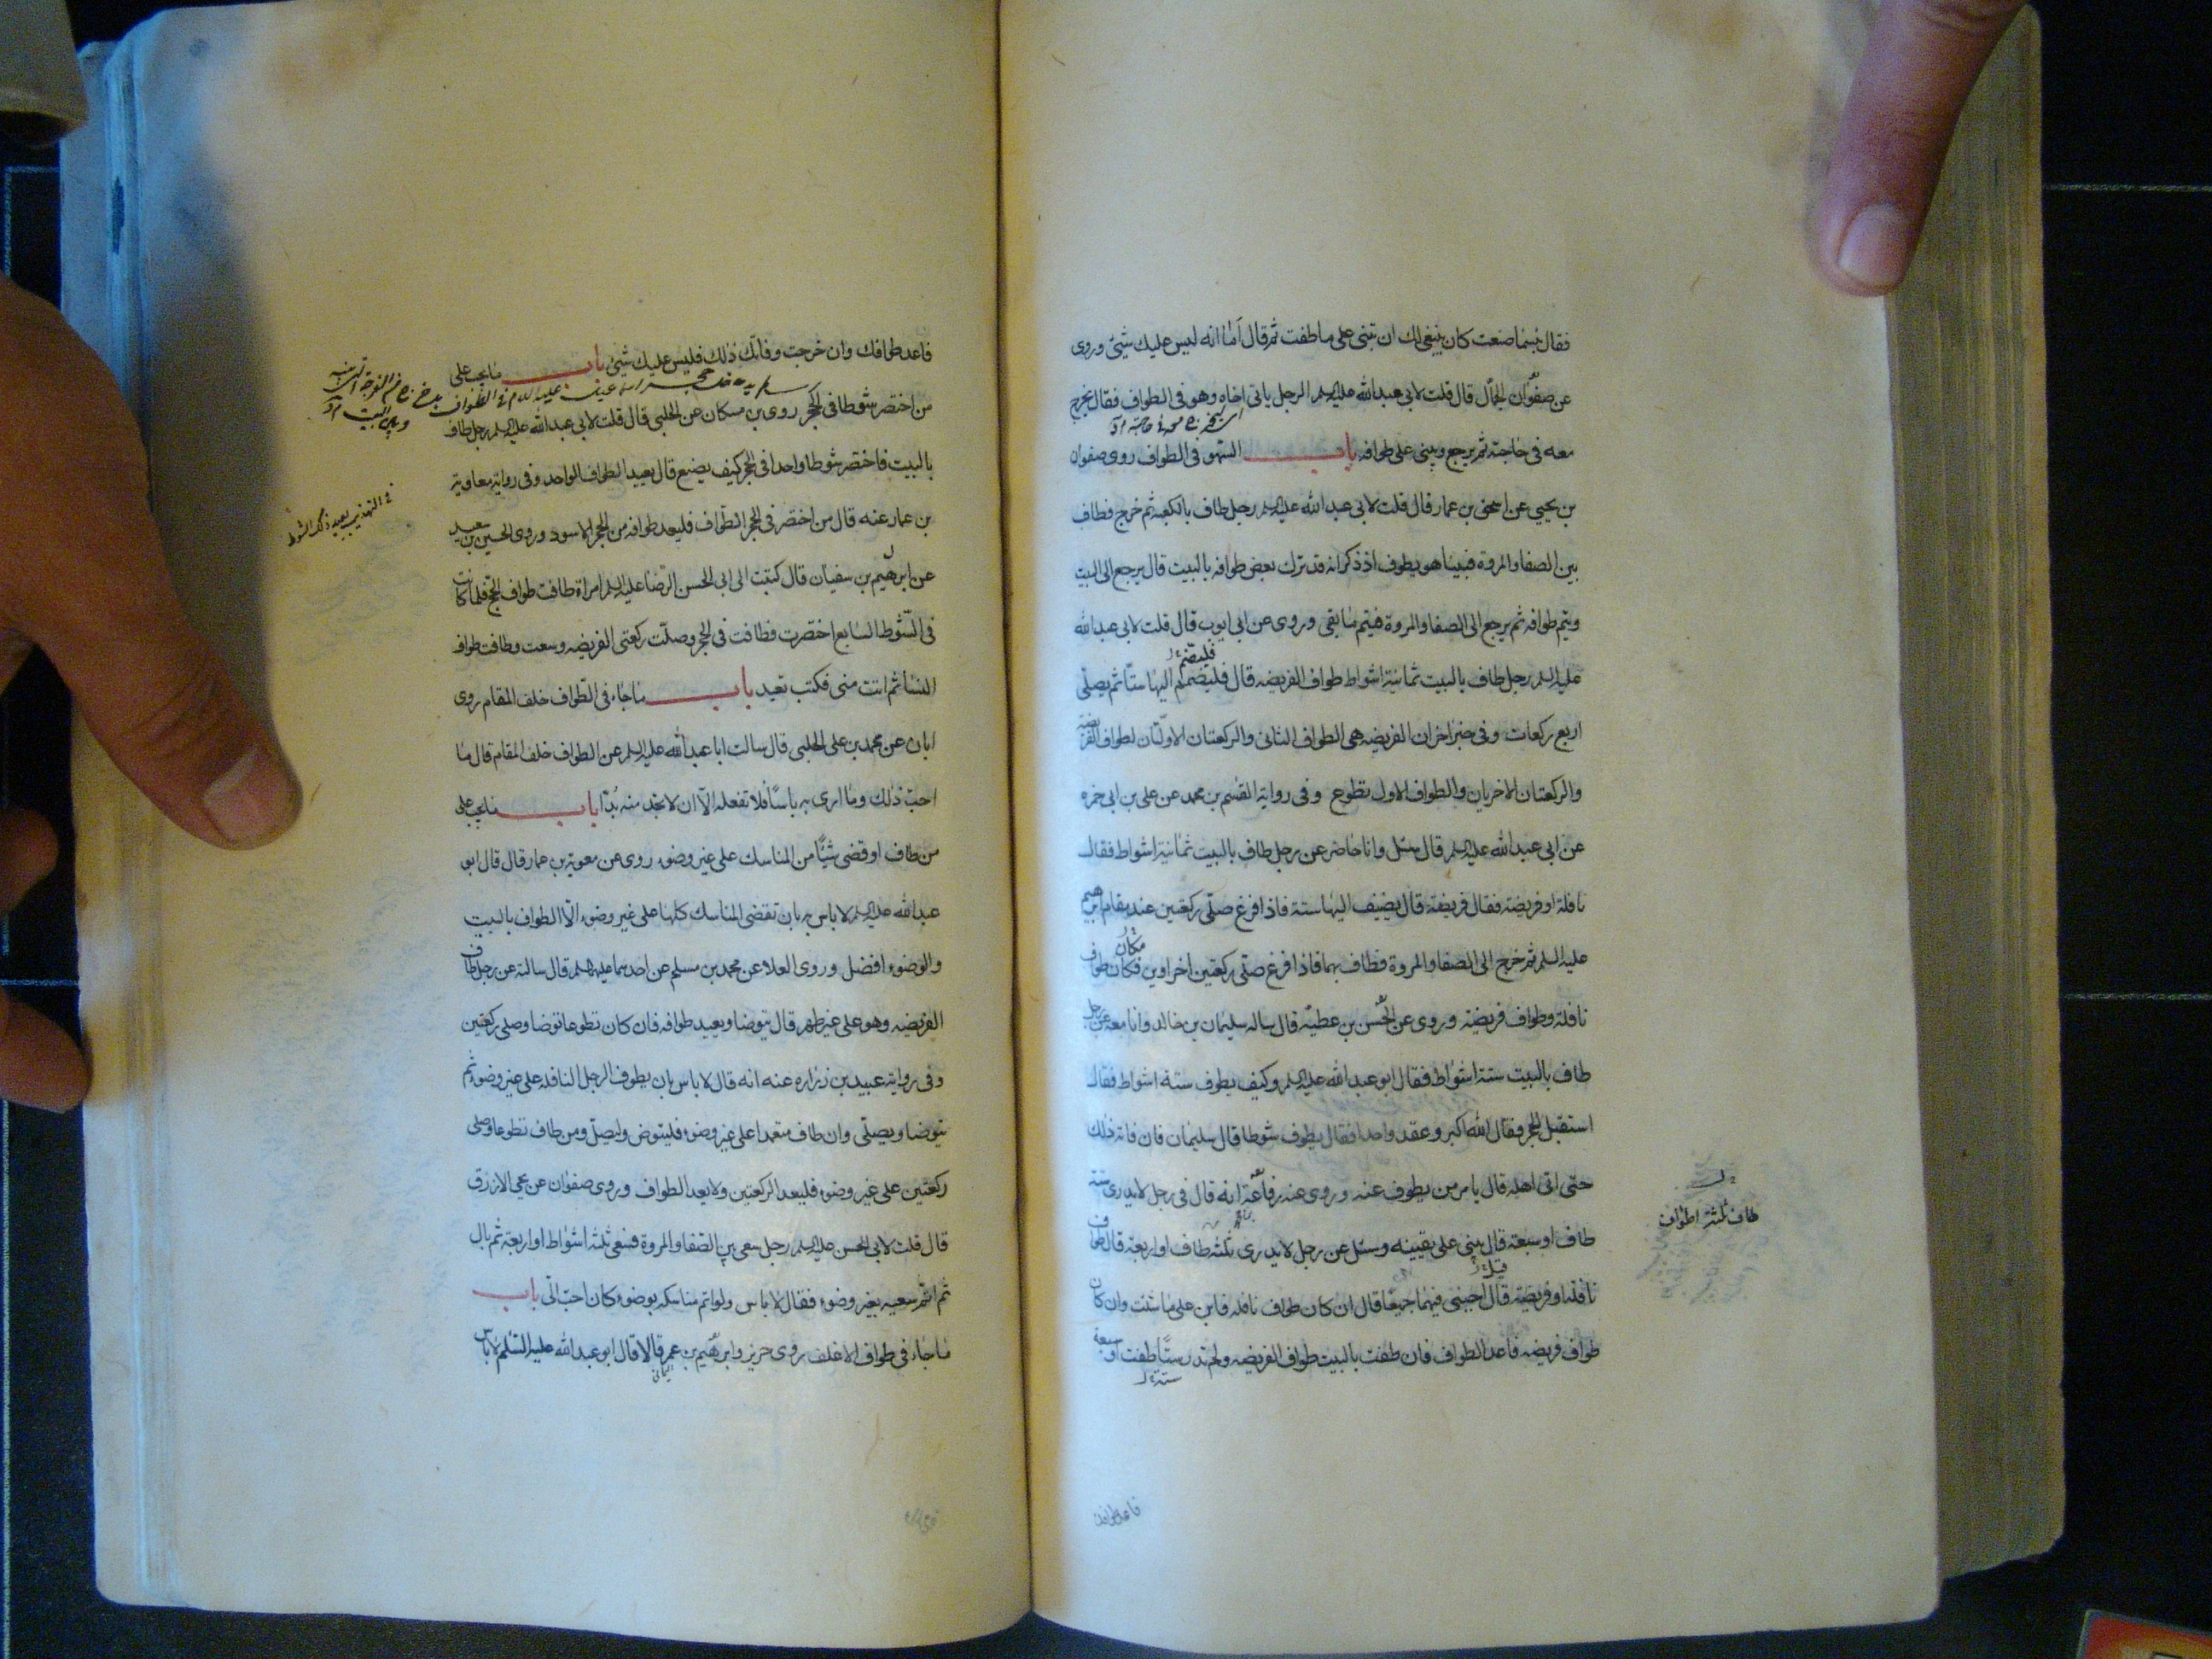 فقال بئسما صنعت كان ينبغى لك ان تبنى على ما طفت ثم قال اما انه ليس عليك شئ وروى
عن صفوان الجمال قال قلت لابى عبد الله عليه السلم الرجل ياتى اخاه وهو فى الطواف فقال يخرج
معه فى حاجته ثم يرجع ويبنى على طوافه باب السهو فى الطواف روى صفوان
بن يحيى عن اسحق بن عمار قال قلت لابى عبد الله عليه السلم رجل طاف بالكعبة ثم خرج فطاف
بين الصفا والمروة فبينا هو يطوف اذ ذكر انه قد ترك بعض طوافه بالبيت قال يرجع الى البيت
ويتم طوافه ثم يرجع الى الصفا والمروة فيتم ما بقى وروى عن ابى ايوب قال قلت لابى عبد الله
فليضم
عليه السلم رجل طاف بالبيت ثمانية اشواط طواف الفريضه قال فليضم اليها ستا ثم يصلى
اربع ركعات وفى خبر اخر ان الفريضه هى الطواف الثانى والركعتان الاولتان لطواف الفريضة
والركعتان الاخريان والطواف الاول تطوع وفى رواية القسم بن محمد عن على بن ابى حمزه
عن ابى عبد الله عليه السلم قال سئل وانا حاضر عن رجل طاف بالبيت ثمانية اشواط فقال
نافلة او فريضة فقال فريضة قال يضيف اليها ستة فاذا فرغ صلى ركعتين عند مقام ابرهيم
عليه السلم ثم خرج الى الصفا والمروة فطاف بهما فاذا فرغ صلى ركعتين اخراوين فكان طواف
نافلة وطواف فريضة وروى عن الحسن بن عطيه قال ساله سليمان بن خالد وانا معه عن رجل
طاف بالبيت ستة اشواط فقال ابو عبد الله عليه السلم وكيف يطوف ستة اشواط فقال
استقبل الحجر فقال الله اكبر وعقد واحدا فقال يطوف شوطا قال سليمان فان فاته ذلك
حتى اتى اهله قال يامر من يطوف عنه وروى عنه رفاعة انه قال فى رجل لا يدرى ستة
طاف ثلثة اطواف
طاف او سبعة قال يبنى على يقينه وسئل عن رجل لا يدرى ثلثه طاف او اربعة قال طاف
نافلة او فريضة قال اجبنى فيهما جميعا قال ان كان طواف نافله فابن على ما شئت وان كان
طواف فريضه فاعد الطواف فان طفت بالبيت طواف الفريضه ولم تدر ستا طفت او سبعة
ستة
فاعد طوافك
فاعد طوافك وان خرجت وفاتك ذلك فليس عليك شئ باب ما يجب على
من اختصر شوطا فى الحجر روى بن مسكان عن الحلبى قال قلت لابى عبد الله عليه السلم رجل طاف
بالبيت فاختصر شوطا واحدا فى الحجر كيف يصنع قال يعيد الطواف الواحد وفى رواية معاوية
فى التهذيب يعيد ذلك الشوط
بن عمار عنه قال من اختصر فى الحجر الطواف فليعد طوافه من الحجر الاسود وروى الحسين بن سعيد
عن ابرهيم بن سفيان قال كتبت الى ابى الحسن الرضا عليه السلم امراة طافت طواف الحج فلما كانت
فى الشوط السابع اختصرت فطافت فى الحجر وصلت ركعتى الفريضه وسعت وطافت طواف
النسا ثم اتت منى فكتب تعيد باب ما جاء فى الطواف خلف المقام روى
ابان عن محمد بن على الحلبى قال سالت ابا عبد الله عليه السلم عن الطواف خلف المقام قال ما
احب ذلك وما ارى به باسا فلا تفعله الا ان لا تجد منه بدا باب ما يجب على
من طاف او قضى شيئا من المناسك على غير وضوء روى عن معوية بن عمار قال قال ابو
عبد الله عليه السلم لا باس بان تقضى المناسك كلها على غير وضوء الا الطواف بالبيت
والوضوء افضل وروى العلا عن محمد بن مسلم عن احدهما عليهما السلم قال سالته عن رجل طاف
الفريضه وهو على غير طهر قال يتوضا ويعيد طوافه فان كان تطوعا توضا وصلى ركعتين
وفى رواية عبيد بن زراره عنه انه قال لا باس بان يطوف الرجل النافله على غير وضوء ثم
يتوضا ويصلى وان طاف متعمدا على غير وضوء فليتوض وليصل ومن طاف تطوعا وصلى
ركعتين على غير وضوء فليعد الركعتين ولا يعد الطواف وروى صفوان عن يحيى الازرق
قال قلت لابى الحسن عليه السلم رجل سعى بين الصفا والمروة فسعى ثلثة اشواط او اربعة ثم بال
ثم اتم سعيه بغير وضوء فقال لا باس ولو اتم مناسكه بوضوء كان احب الى باب
ما جاء فى طواف الاغلف روى حريز وابرهيم بن عمر قالا قال ابو عبد الله عليه السلم لا باس
اليمانى